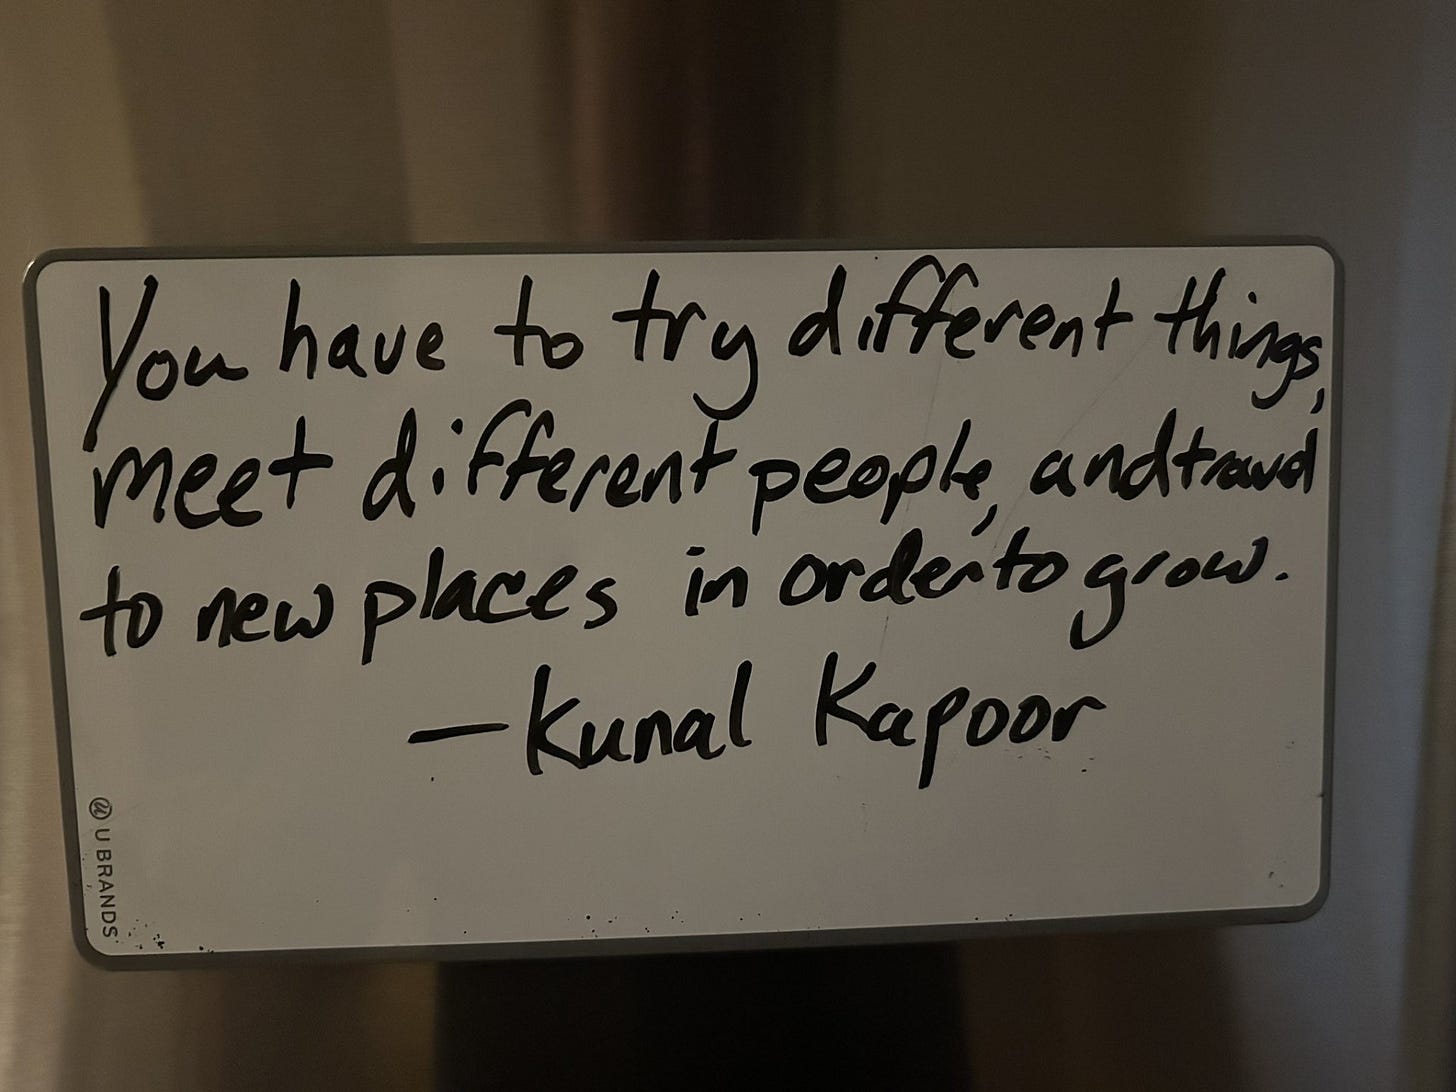 You have to try different things,
meet different people, and travel
to new places in order to grow.
—Kunal Kapoor
U BRANDS